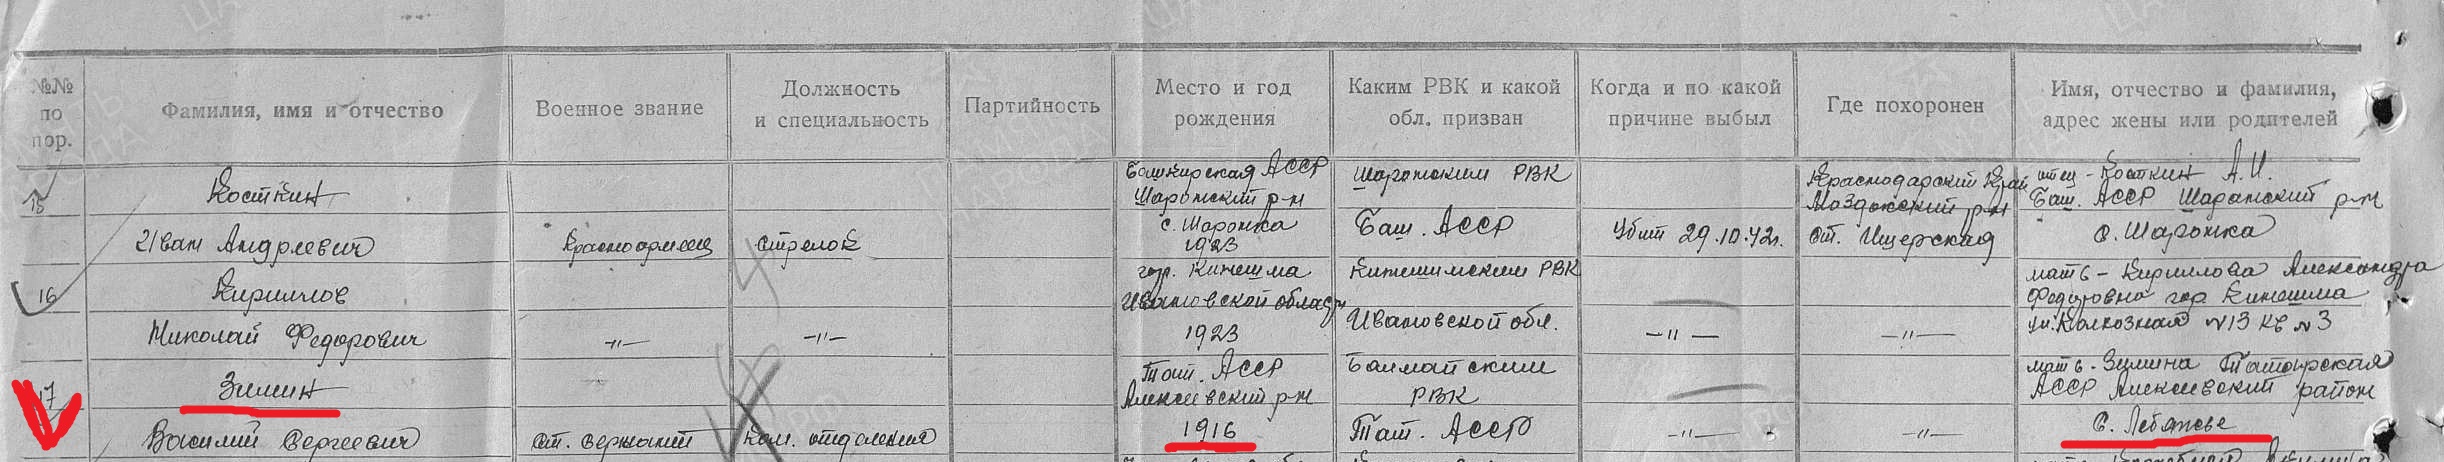 №№ по пор.
Фамилия, имя и отчество
Военное звание
Должность и специальность
Партийность
Место и год рождения
Каким РВК и какой обл. призван
Когда и по какой причине выбыл
Где похоронен
Имя, отчество и фамилия, адрес жены или родителей
15
Косткин
Иван Андреевич
Красноармеец
стрелок
Башкирская АССР
Шаранский р-н
с. Шаронка
1923
Шаранским РВК
Баш. АССР
Убит 29.10.42г.
Краснодарский Край
Моздокский р-н
ст. Ищерская
отец - Косткин А.И.
Баш. АССР Шаранский р-н
с. Шаронка
16
Кириллов
Николай Федорович
—"—
—"—
гор. Кинешма
Ивановской области
1923
Кинешимским РВК
Ивановской обл.
—"—
—"—
мать - Кириллова Александра
Федоровна гор Кинешма
ул. Колхозная №13 кв №3
17
Зимин
Василий Сергеевич
ст. сержант
Ком. отделения
Тат. АССР
Алексеевский р-н
1916
РВК
Тат. АССР
—"—
—"—
мать - Зимина Татарская
АССР Алексеевский район
с. Лебяжье